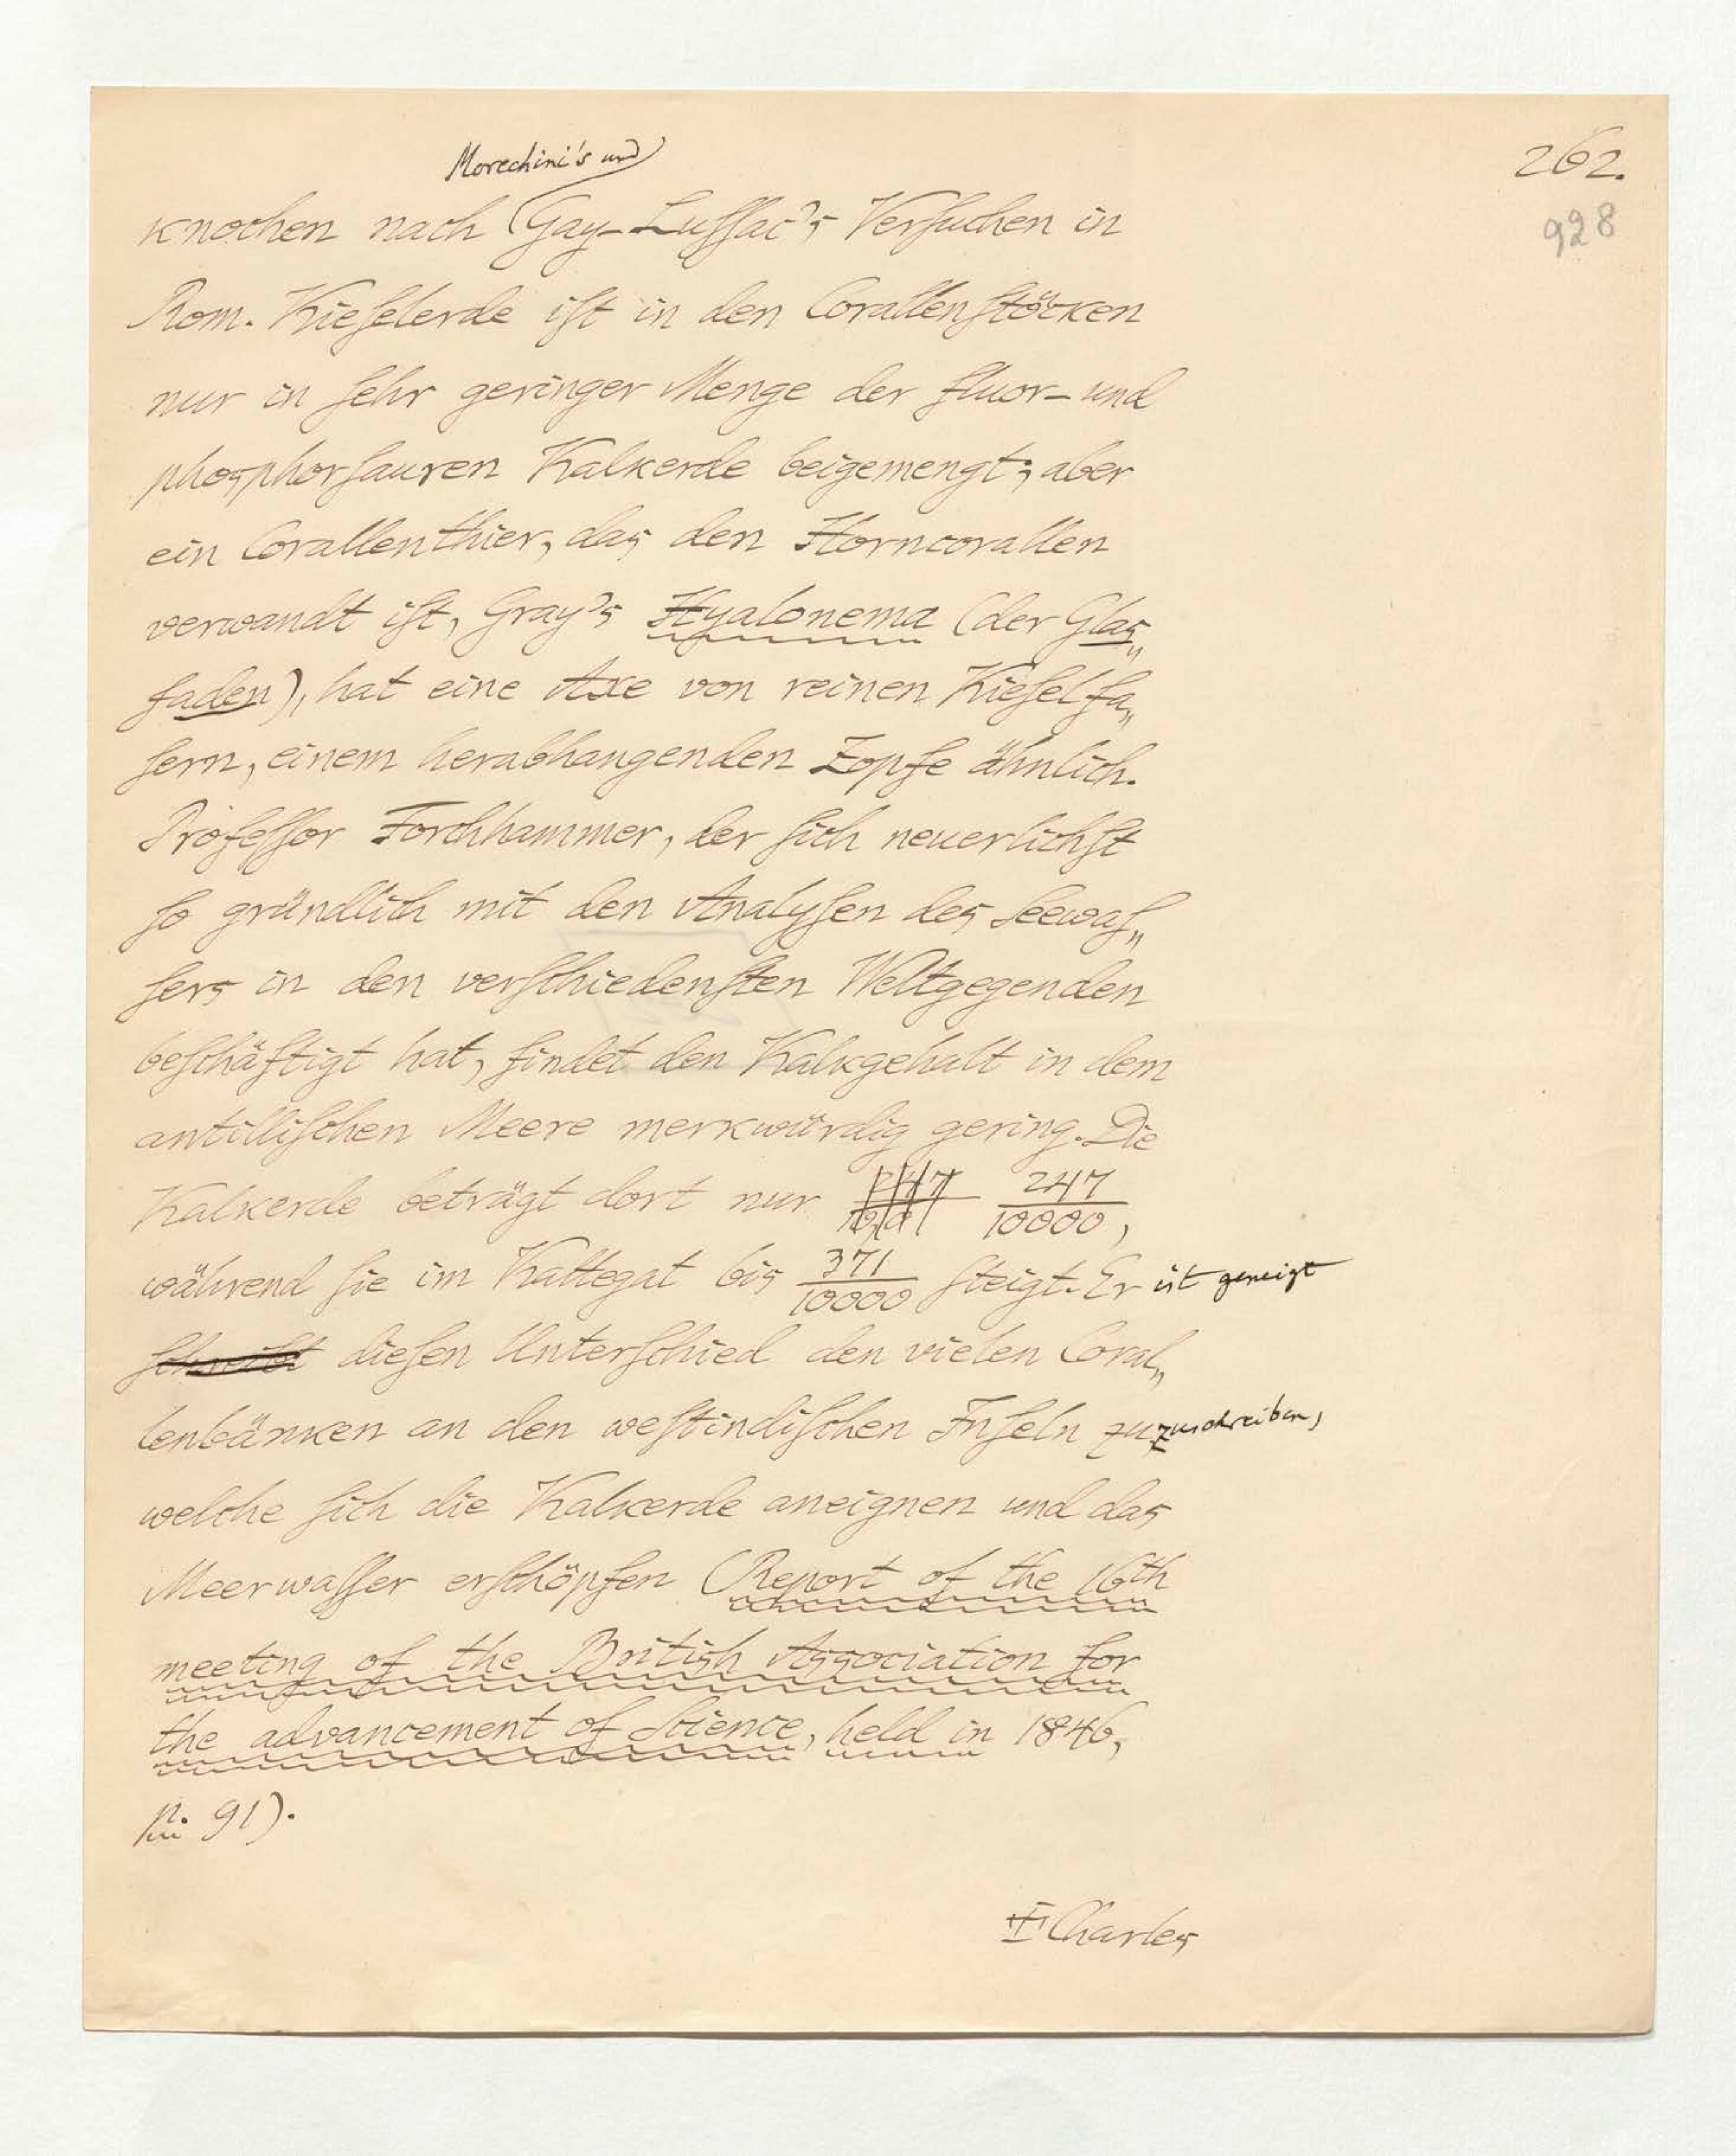 262.
928
Morechini's und
knochen nach Gay-Luſſac's Verſuchen in
Rom. Kieſelerde iſt in den Corallenſtöcken
nur in ſehr geringer Menge der fluor- und
phosphorſauren Kalkerde beigemengt; aber
ein Corallenthier, das den Horncorallen
verwandt iſt, Gray's Hyalonema (der Glas„
faden), hat eine Axe von reinen Kieſelfa„
ſern, einem herabhangenden Zopfe ähnlich.
Profeſſor Forchhammer, der ſich neuerlichſt
ſo gründlich mit den Analyſen des Seewaſ„
ſers in den verſchiedenſten Weltgegenden
beſchäftigt hat, findet den Kalkgehalt in dem
antilliſchen Meere merkwürdig gering. Die
Kalkerde beträgt dort nur 247/10000,
während ſie im Kattegat bis 371/10000 ſteigt. Er ist geneigt
ſchreibt dieſen Unterſchied den vielen Coral„
lenbänken an den weſtindiſchen Inſeln zu zuschreiben,
welche ſich die Kalkerde aneignen und das
Meerwaſſer erſchöpfen (Report of the 16th
meeting of the British Association for
the advancement of Science, held in 1846,
p. 91).
Charles